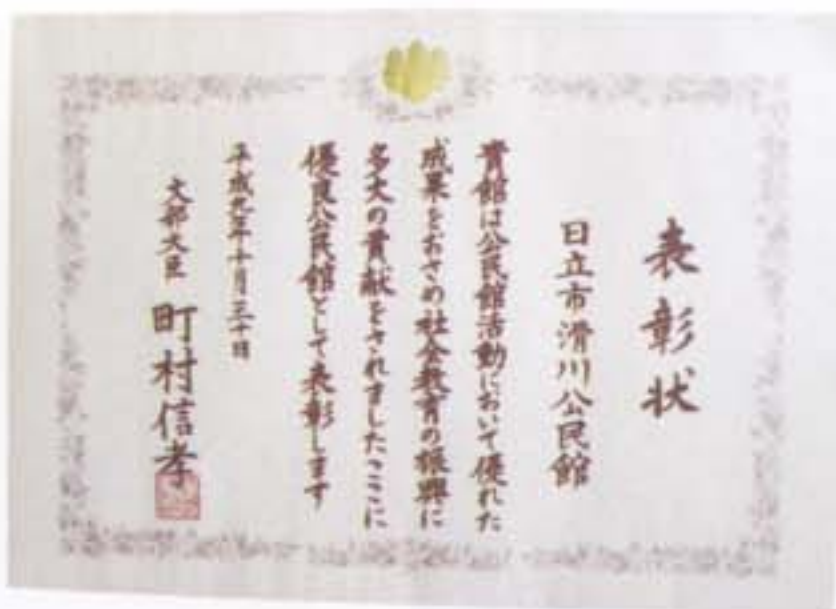 表彰状
日立市滑川公民館
貴館は公民館活動において優れた
成果をおさめ社会教育の振興に
多大の貢献をされましたここに
優良公民館として表彰します
平成九年十月三十日
文部大臣 町村信孝